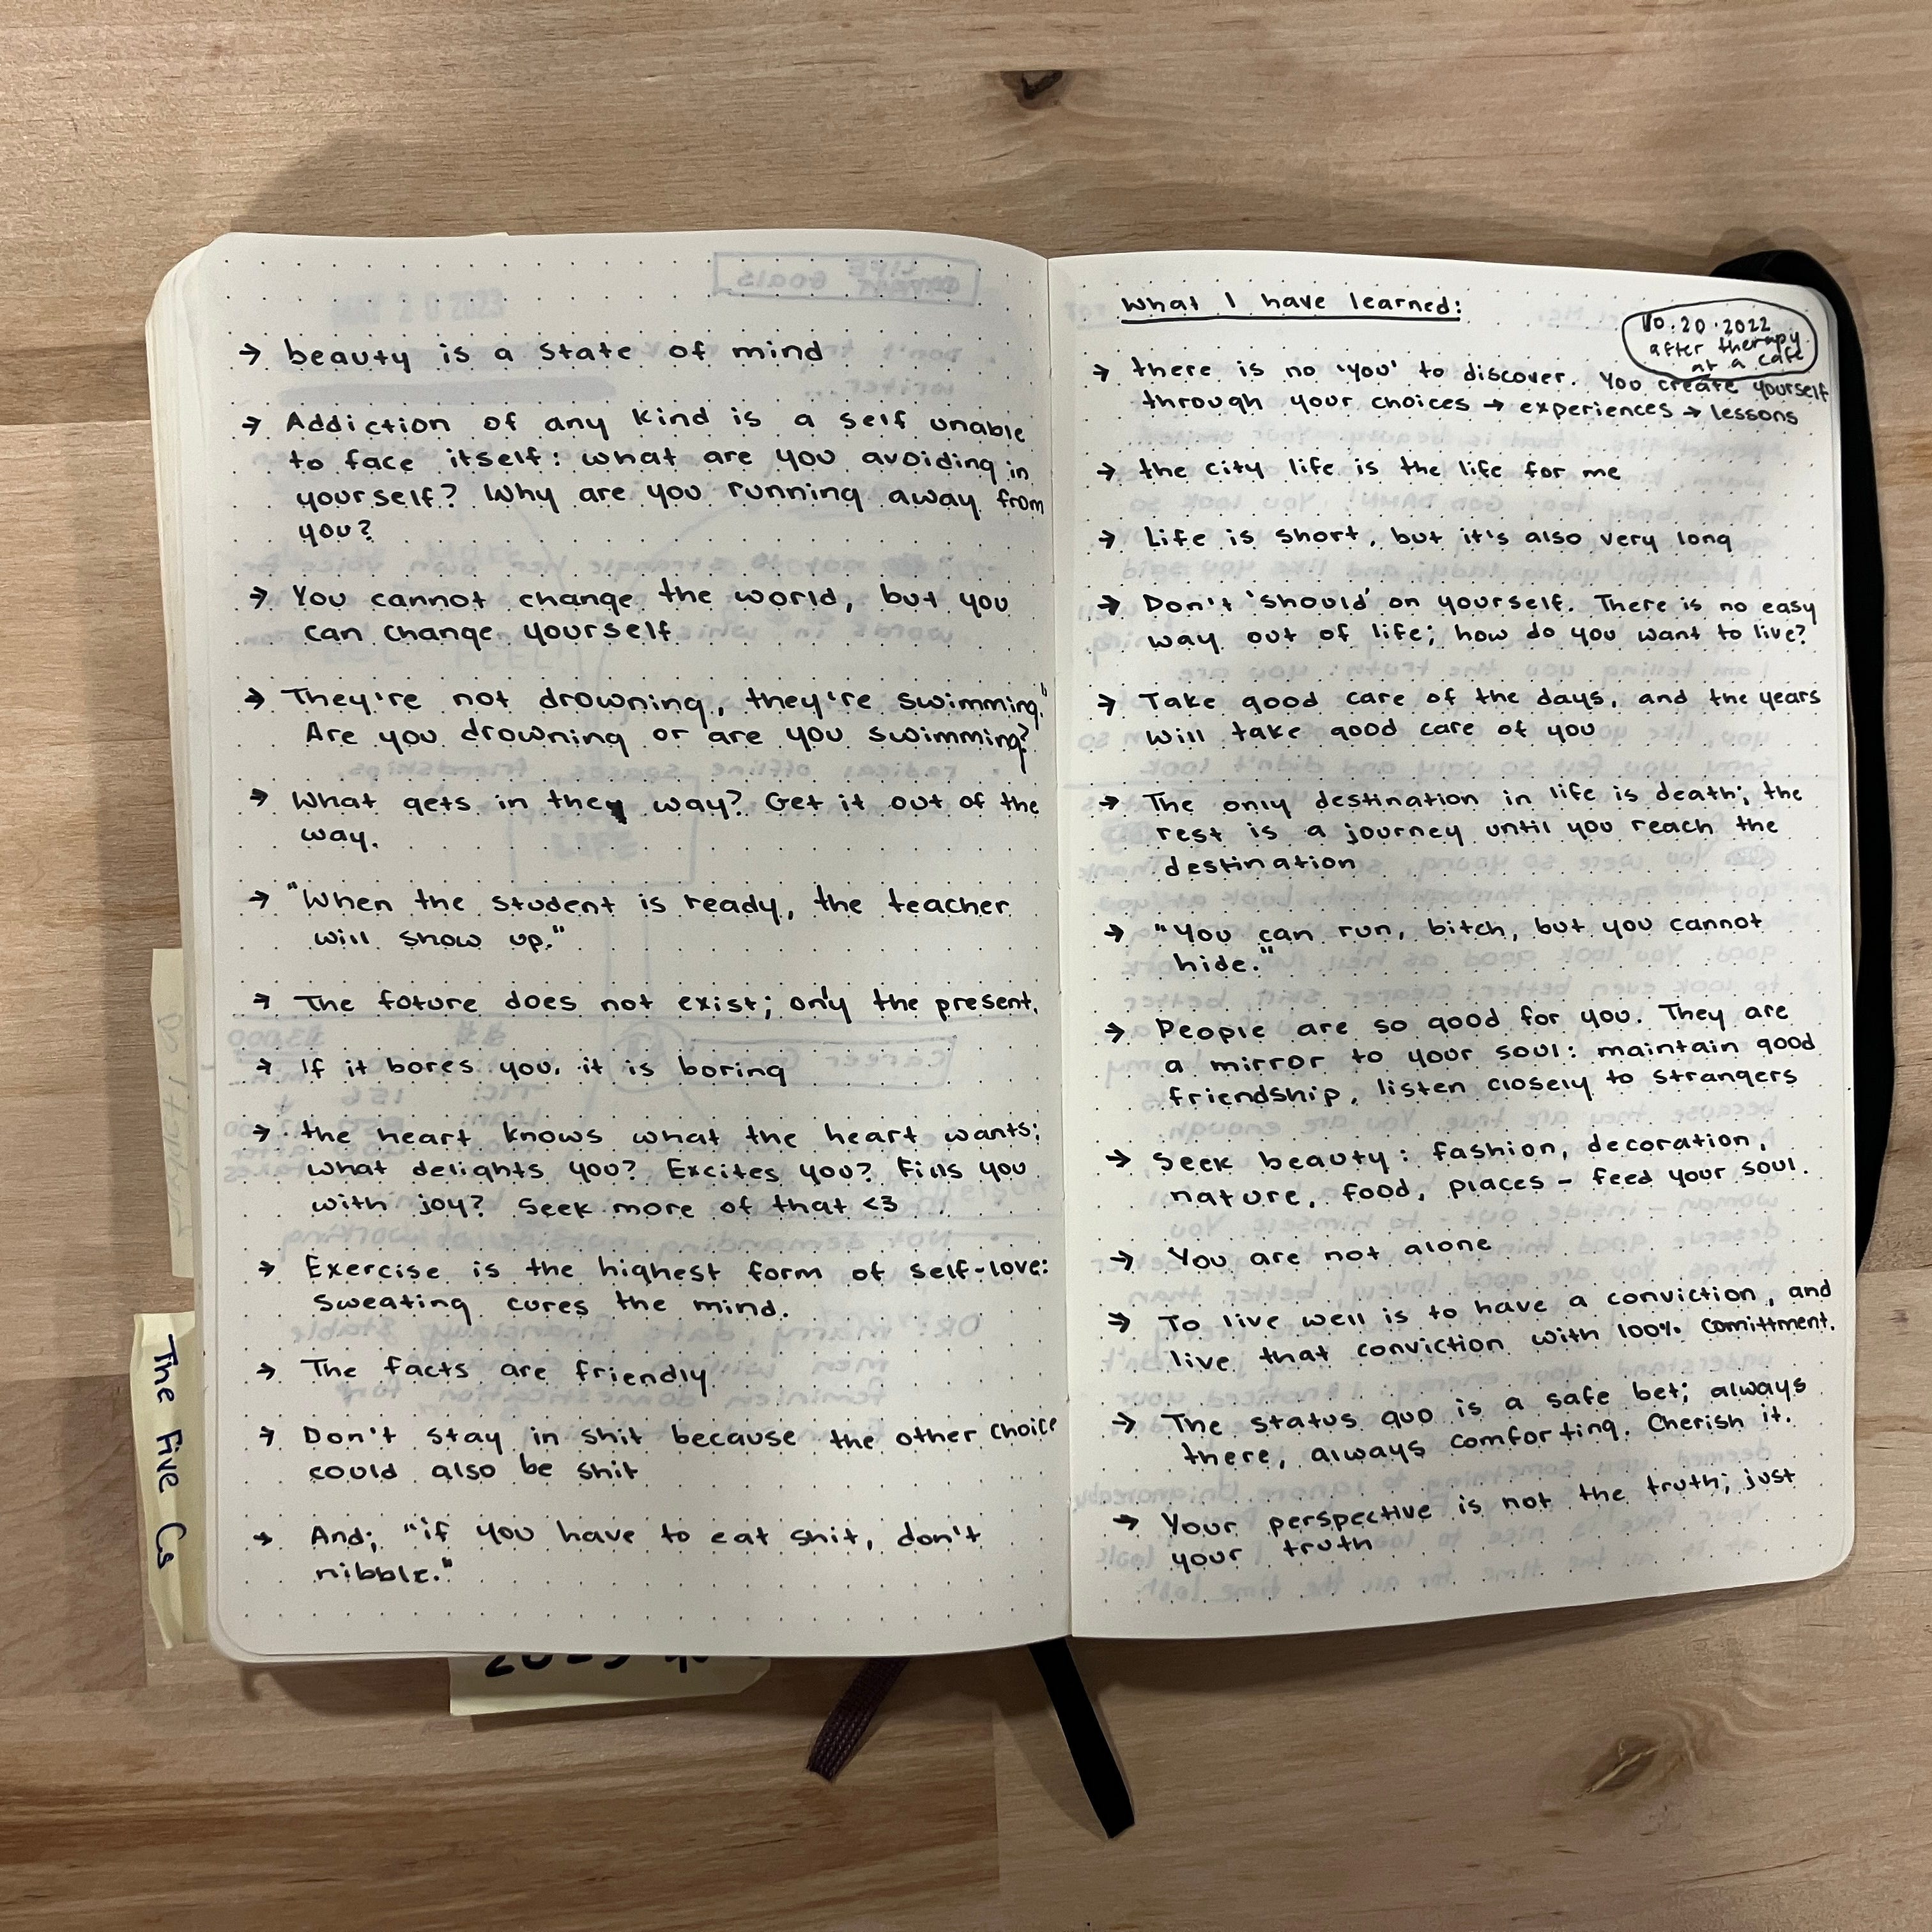 → beauty is a state of mind
→ Addiction of any kind is a self unable
to face itself: what are you avoiding in
yourself? Why are you running away from
you?
→ You cannot change the world, but you
can change yourself
→ They're not drowning, they're swimming"
Are you drowning or are you swimming?
→ What gets in they way? Get it out of the
way.
→ "When the student is ready, the teacher
will show up."
→ The future does not exist; only the present.
→ If it bores you, it is boring
→ the heart knows what the heart wants:
what delights you? Excites you? Fills you
with joy? Seek more of that <3
→ Exercise is the highest form of self-love:
Sweating cures the mind.
→ The facts are friendly
→ Don't stay in shit because the other choice
could also be shit
→ And; "if you have to eat shit, don't
nibble."
The Five Cs
What I have learned:
10.20.2022
after therapy
at a cafe
→ there is no 'you' to discover. You create yourself
through your choices → experiences → lessons
→ the city life is the life for me
→ Life is short, but it's also very long
→ Don't 'should' on yourself. There is no easy
way out of life; how do you want to live?
→ Take good care of the days, and the years
will take good care of you
→ The only destination in life is death; the
rest is a journey until you reach the
destination
→ "You can run, bitch, but you cannot
hide."
→ People are so good for you. They are
a mirror to your soul: maintain good
friendship, listen closely to strangers
→ Seek beauty: fashion, decoration,
nature, food, places - feed your soul.
→ You are not alone
→ To live well is to have a conviction, and
live that conviction with 100% comittment.
→ The status quo is a safe bet; always
there, always comforting. Cherish it.
→ Your perspective is not the truth; just
your truth